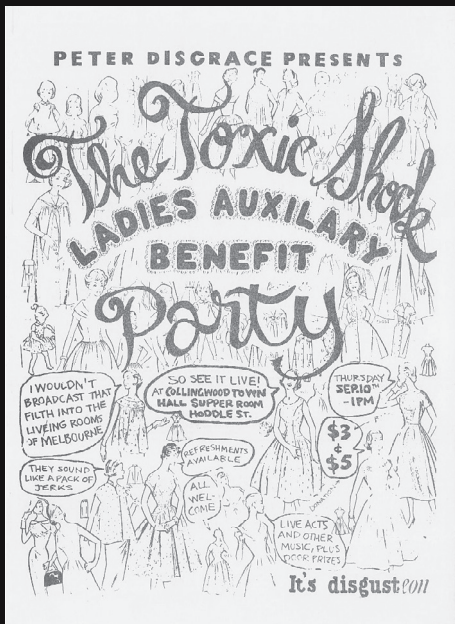 PETER DISGRACE PRESENTS
The Toxic Shock
LADIES AUXILARY
BENEFIT
Party
I WOULDN'T
BROADCAST THAT
FILTH INTO THE
LIVEING ROOMS
OF MELBOURNE
SO SEE IT LIVE!
AT COLLINGWOOD TOWN
HALL SUPPER ROOM
HODDLE ST.
THURSDAY
SEP.10TH
1PM
$3
&
$5
THEY SOUND
LIKE A PACK OF
JERKS
REFRESHMENTS
AVAILABLE
ALL
WEL
COME
LIVE ACTS
AND OTHER
MUSIC, PLUS
DOOR PRIZES
It's disgusteou